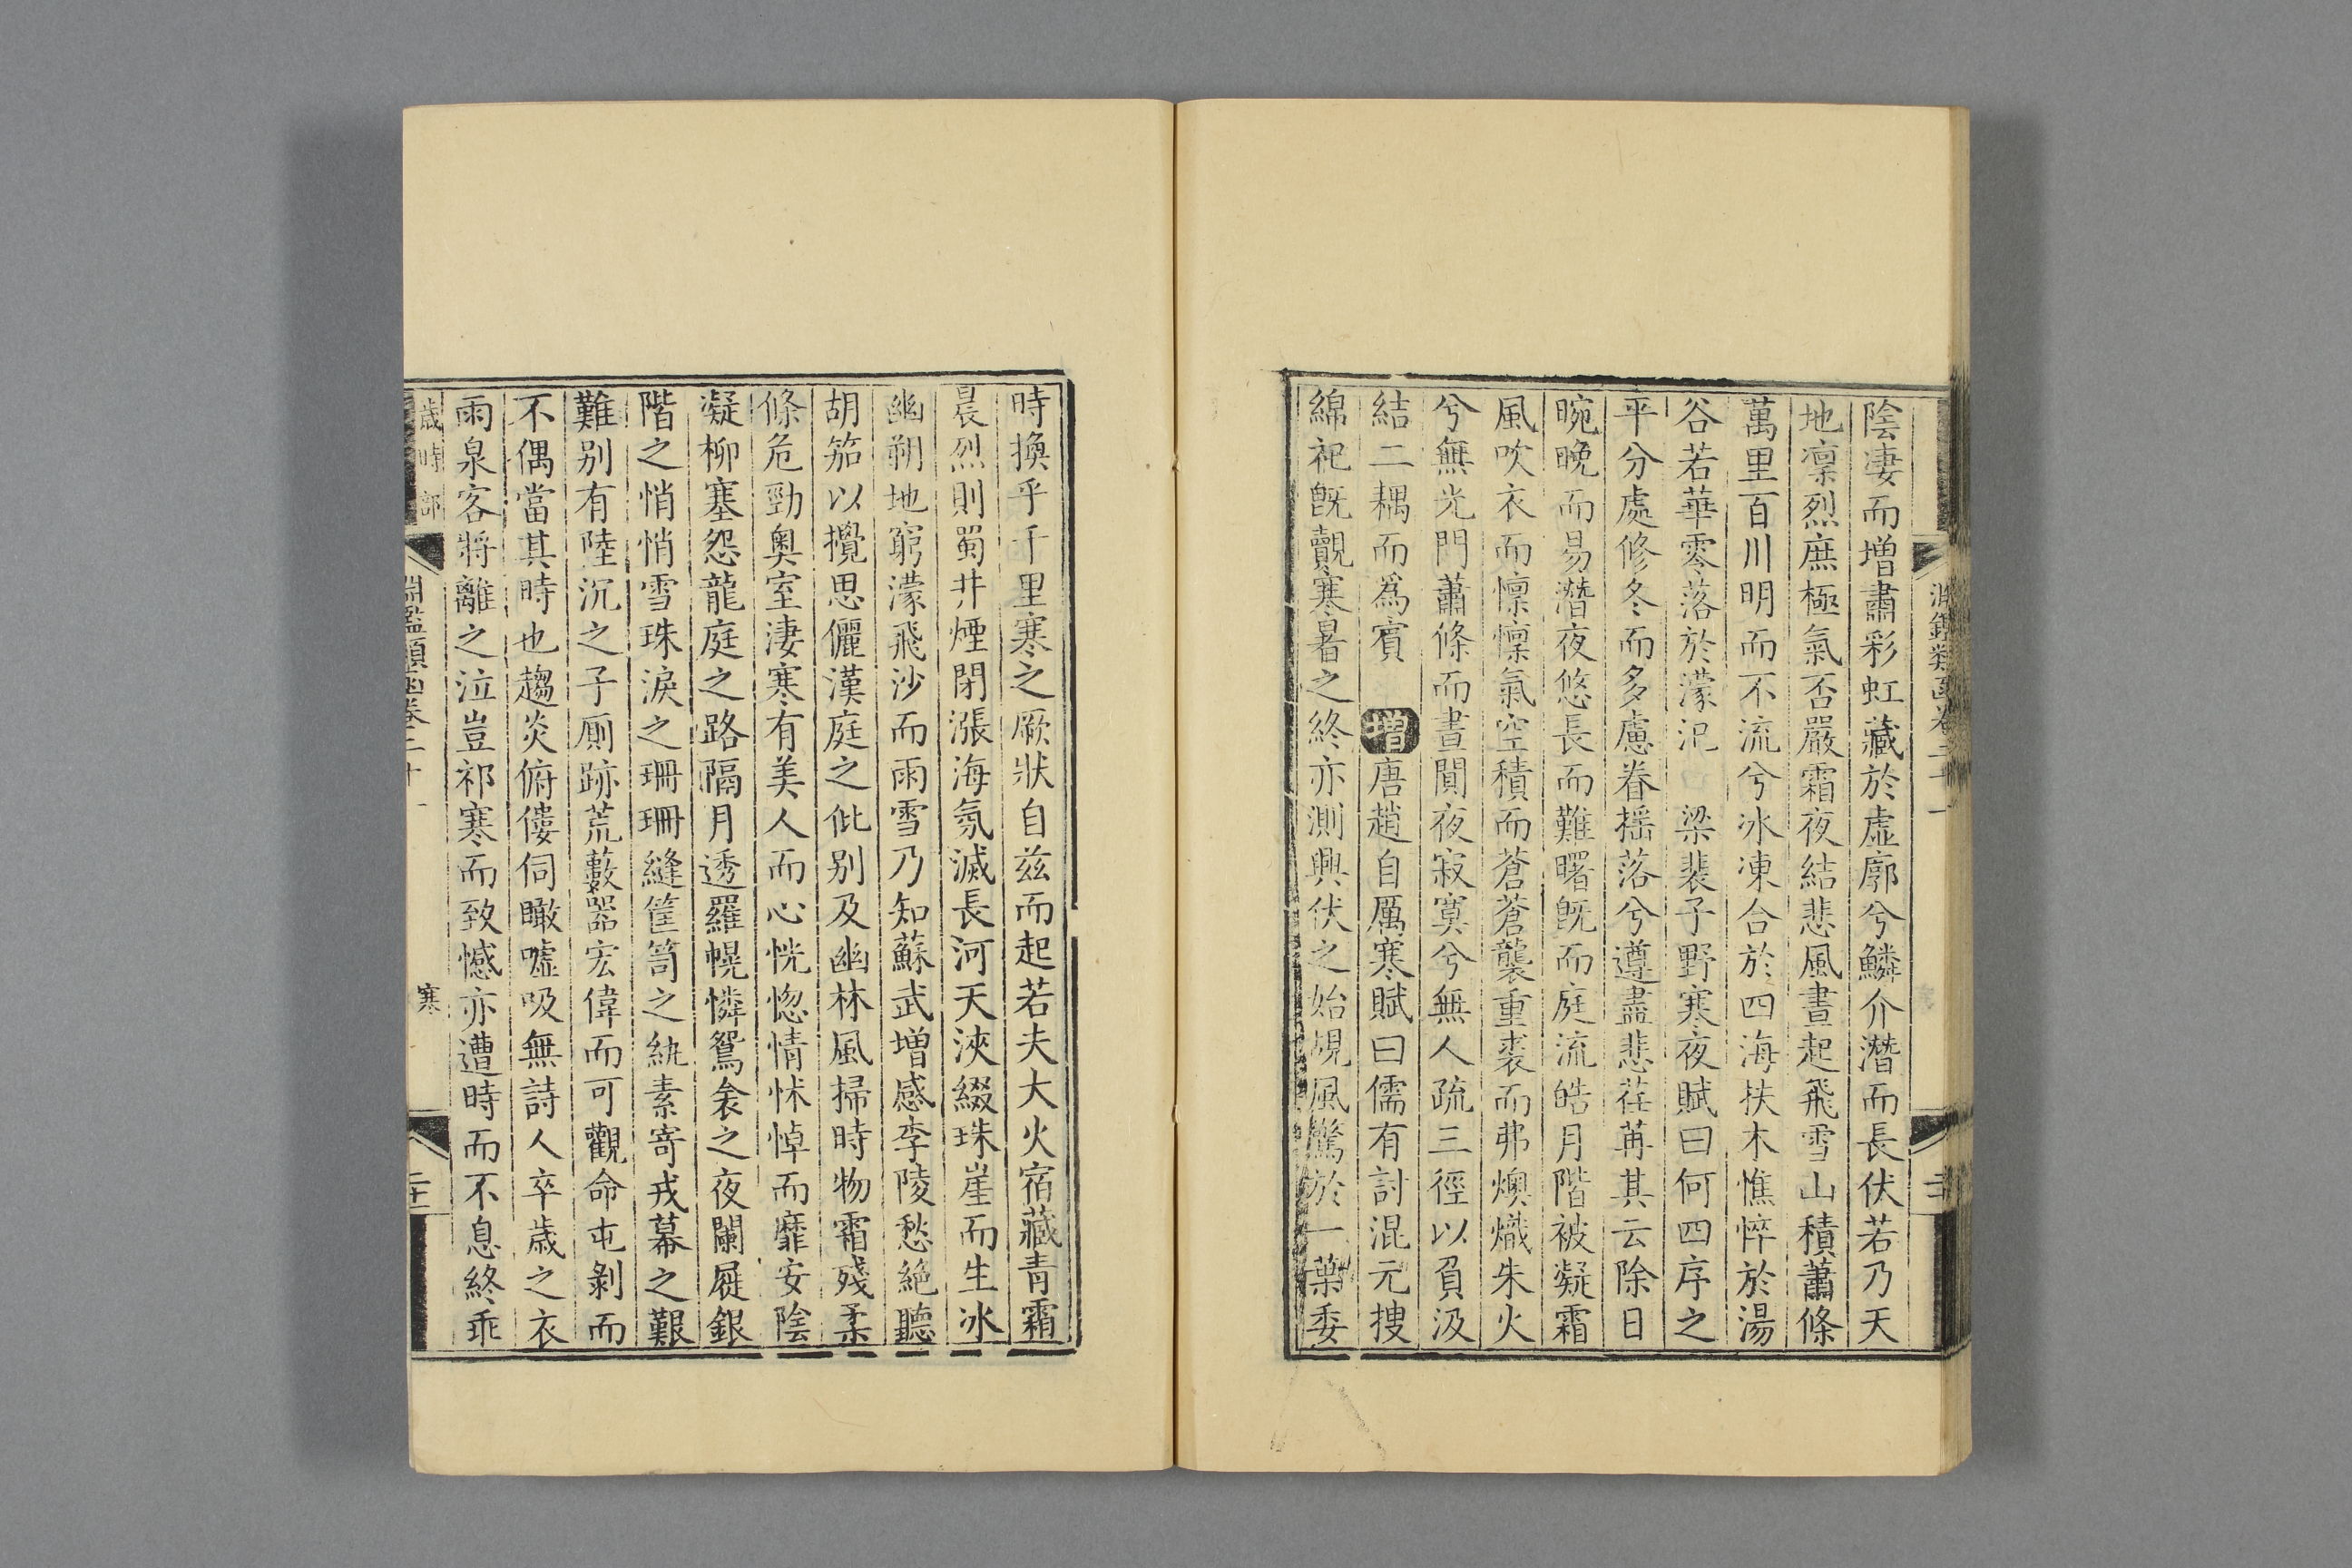 淵鑑類函卷二十一
陰凄而增肅彩虹藏於虛廓兮鱗介潛而長伏若乃天
地凛烈庶極氣否嚴霜夜結悲風晝起飛雪山積蕭條
萬里百川明而不流兮冰凍合於四海扶木憔悴於湯
谷若華零落於濛汜 梁裴子野寒夜賦曰何四序之
平分處修冬而多慮眷揺落兮遵盡悲荏苒其云除日
晼晚而易潛夜悠長而難曙旣而庭流皓月階被凝霜
風吹衣而懔懔氣空積而蒼蒼襲重裘而弗燠熾朱火
兮無光門蕭條而晝閴夜寂寞兮無人疏三徑以負汲
結二耦而爲賓 增唐趙自厲寒賦曰儒有討混元捜
綿祀旣觀寒暑之終亦測興伏之始覘風驚於一葉委
時換乎千里寒之厥狀自兹而起若夫大火宿藏青霜
晨烈則蜀井煙閉漲海氛滅長河天浹綴珠崖而生冰
幽朔地窮濛飛沙而雨雪乃知蘇武增感李陵愁絶聽
胡笳以攪思儷漢庭之仳别及幽林風掃時物霜殘柔
條危勁奥室淒寒有美人而心恍惚情怵悼而靡安陰
凝柳塞怨龍庭之路隔月透羅幌憐鴛衾之夜闌屣銀
階之悄悄雪珠淚之珊珊縫筐笥之紈素寄戎幕之艱
難别有陸沉之子厠跡荒藪器宏偉而可觀命屯剝而
不偶當其時也趨炎俯僂伺瞰噓吸無詩人卒歲之衣
雨泉客將離之泣豈祁寒而致憾亦遭時而不息終乖
歲時部 淵鑑類函卷二十一 寒